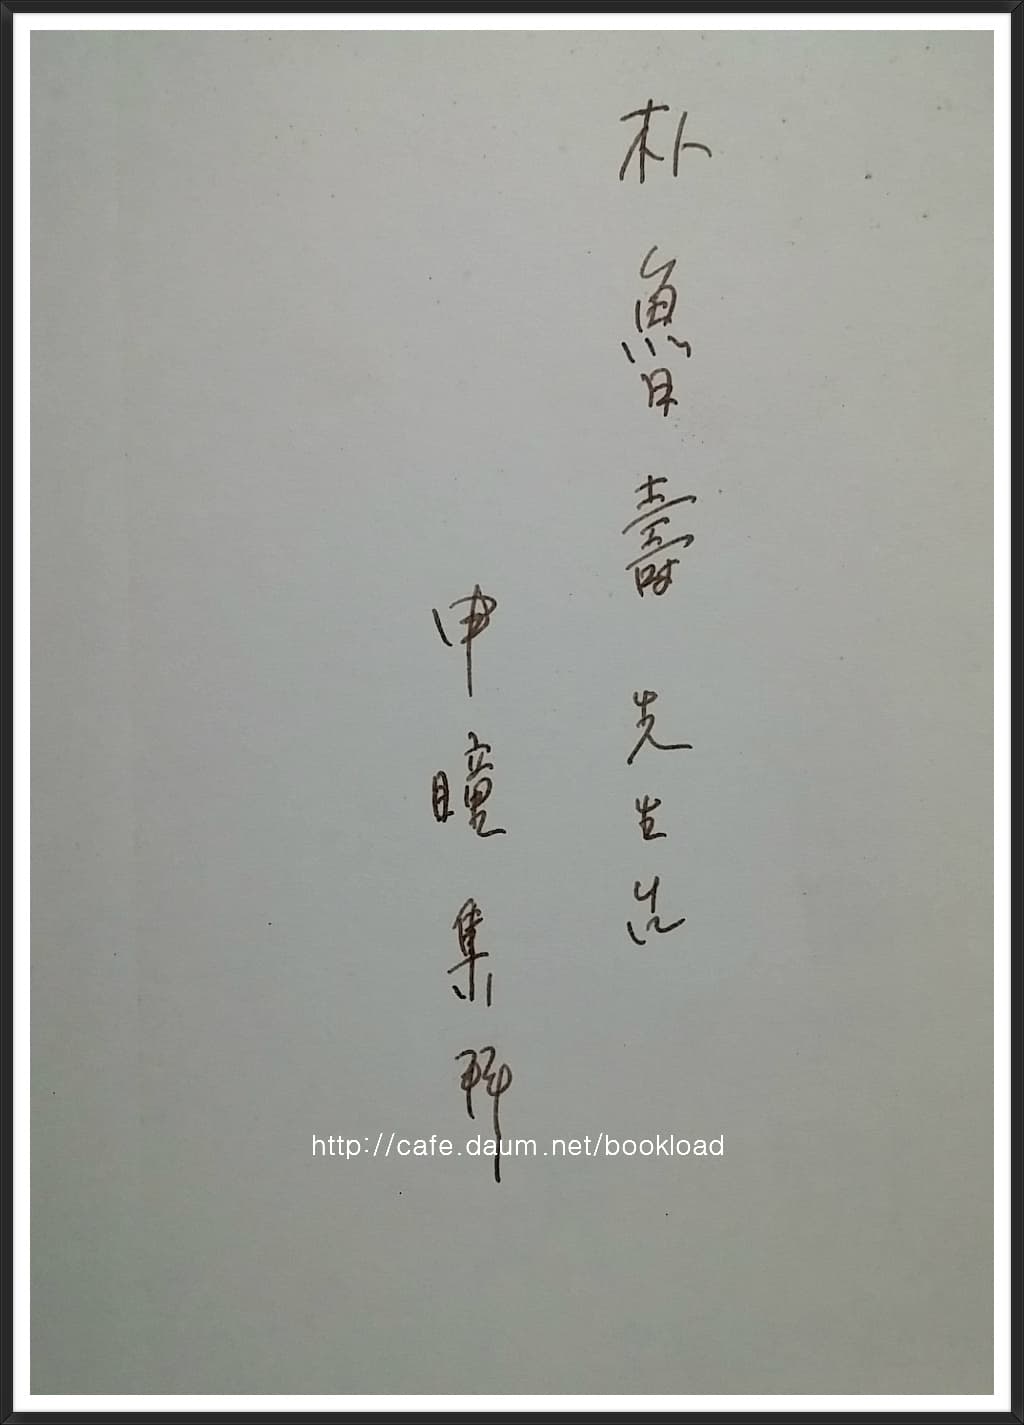 朴魯壽 先生 告
申瞳集 拜
http://cafe.daum.net/bookload